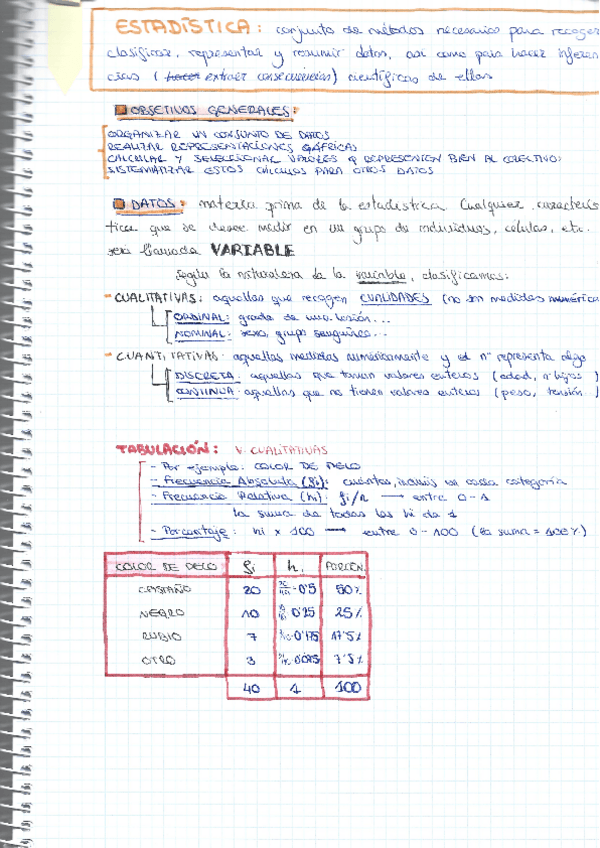 ESTADÍSTICA: conjunto de métodos necesarios para recoger
clasificar, representar y resumir datos, así como para hacer inferen
cias (hacer extraer consecuencias) científicas de ellas
OBJETIVOS GENERALES:
ORGANIZAR UN CONJUNTO DE DATOS
REALIZAR REPRESENTACIONES GRÁFICAS
CALCULAR Y SELECCIONAR VALORES Q REPRESENTEN BIEN AL COLECTIVO
SISTEMATIZAR ESTOS CÁLCULOS PARA OTROS DATOS
DATOS: materia prima de la estadística. Cualquier caracterís
tica que se desee medir en un grupo de individuos, células, etc.
será llamada VARIABLE
Según la naturaleza de la variable, clasificamos:
- CUALITATIVAS: aquellas que recogen CUALIDADES (no son medidas numérica
ORDINAL: grado de una lesión...
NOMINAL: sexo, grupo sanguíneo...
- CUANTITATIVAS: aquellas medidas numéricamente y el nº representa algo
DISCRETA: aquellas que toman valores enteros (edad, nº hijos)
CONTINUA: aquellas que no tienen valores enteros (peso, tensión)
TABULACIÓN: V. CUALITATIVAS
- Por ejemplo: COLOR DE PELO
- Frecuencia Absoluta (fi): cuántos, individuos en cada categoría
- Frecuencia Relativa (hi): fi/n → entre 0-1
la suma de todas las hi da 1
- Porcentaje: hi x 100 → entre 0-100 (la suma = 100%)
COLOR DE PELO fi h. PORCEN.
CASTAÑO 20 20/40=0'5 50%
NEGRO 10 0'25 25%
RUBIO 7 0'175 17'5%
OTRO 3 0'075 7'5%
40 1 100